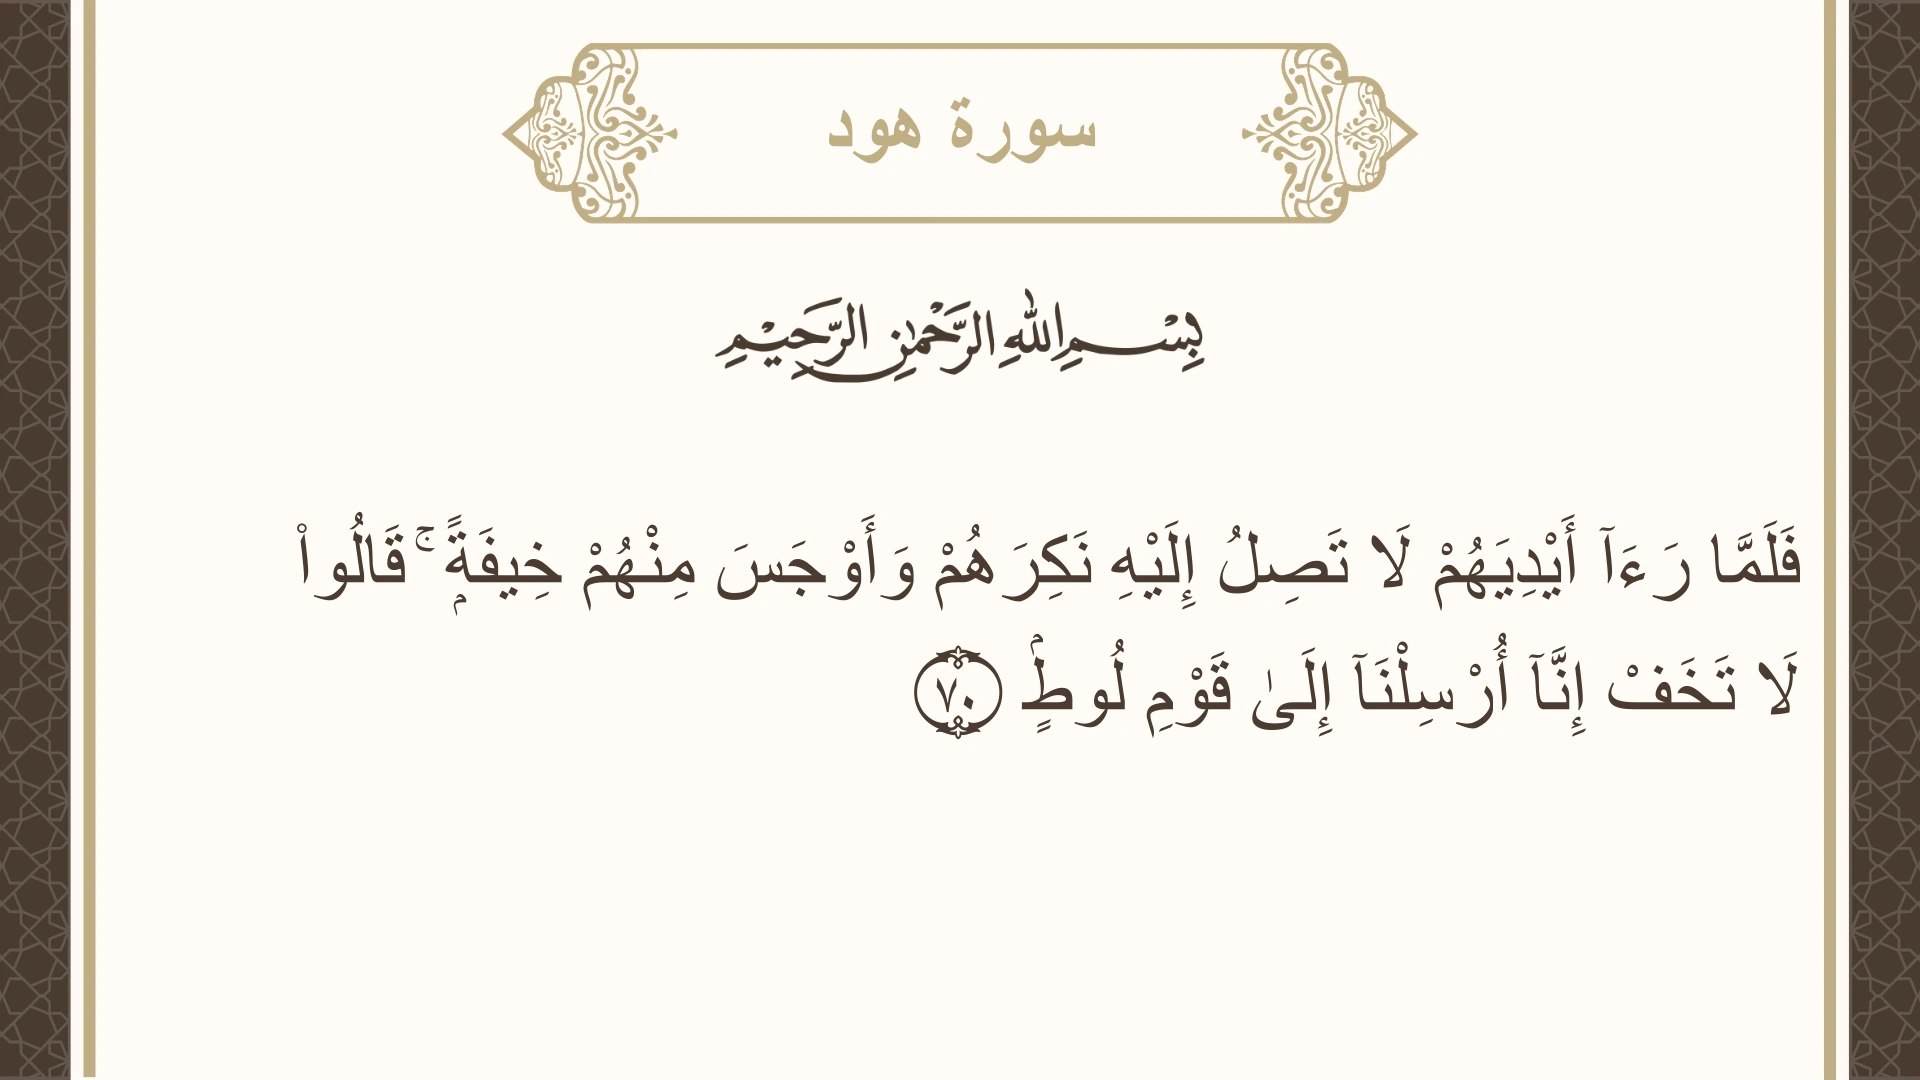 سورة هود
بِسْمِ اللهِ الرَّحْمٰنِ الرَّحِيْمِ
فَلَمَّا رَءَآ أَيْدِيَهُمْ لَا تَصِلُ إِلَيْهِ نَكِرَهُمْ وَأَوْجَسَ مِنْهُمْ خِيفَةًۭ ۚ قَالُوا۟
لَا تَخَفْ إِنَّآ أُرْسِلْنَآ إِلَىٰ قَوْمِ لُوطٍۢ ٧٠